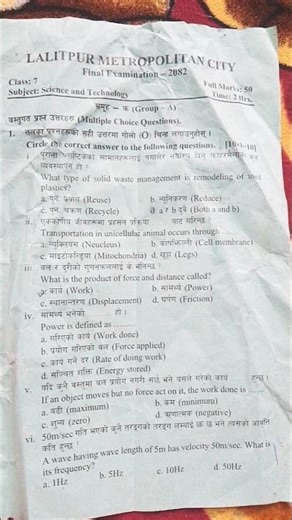 LALITPUR METROPOLITAN CITY
Final Examination – 2082
Class: 7
Full Marks: 50
Subject: Science and Technology
Time: 2 Hrs.
समूह – क (Group – A)
वस्तुगत प्रश्न उत्तरहरु (Multiple Choice Questions).
1. तलका प्रश्नहरुको सही उत्तरमा गोलो (O) चिन्ह लगाउनुहोस् ।
Circle the correct answer to the following questions. [10×1=10]
i. पुराना प्लाष्टिकका सामानहरुलाई पगालेर नयाँ रुप दिनु फोहोरमैला
व्यवस्थापन हो ?
What type of solid waste management is remodeling of used
plastics?
a. पुनः प्रयोग (Reuse) b. न्यूनिकरण (Reduce)
c. पुनः चक्रण (Recycle) d. a र b दुवै (Both a and b)
ii. एककोषीय जीवहरूमा प्रसारण प्रक्रिया बाट गरिन्छ ।
Transportation in unicellular animal occurs through
a. न्युक्लियस (Neucleus) b. कोषझिल्ली (Cell membrane)
c. माइटोकन्ड्रिया (Mitochondria) d. खुट्टा (Legs)
iii. बल र दुरीको गुणनफललाई के भनिन्छ ?
What is the product of force and distance called?
a. कार्य (Work) b. सामर्थ्य (Power)
c. स्थानान्तरण (Displacement) d. घर्षण (Friction)
iv. सामर्थ्य भनेको हो ।
Power is defined as ........
a. गरिएको कार्य (Work done)
b. प्रयोग गरिएको बल (Force applied)
c. कार्य गर्ने दर (Rate of doing work)
d. सञ्चित शक्ति (Energy stored)
v. यदि कुनै वस्तुमा बल प्रयोग नगरी सर्छ भने यसले गरेको कार्य हुन्छ ।
If an object moves but no force act on it, the work done is ......
a. बढी (maximum) b. कम (minimum)
c. शून्य (zero) d. ऋणात्मक (negative)
vi. 50m/sec गति भएको कुनै तरङ्गको तरङ्ग लम्बाई छ भने त्यसको आवृति
कति हुन्छ ?
A wave having wave length of 5m has velocity 50m/sec. What is
its frequency?
a. 1Hz b. 5Hz c. 10Hz d. 50Hz